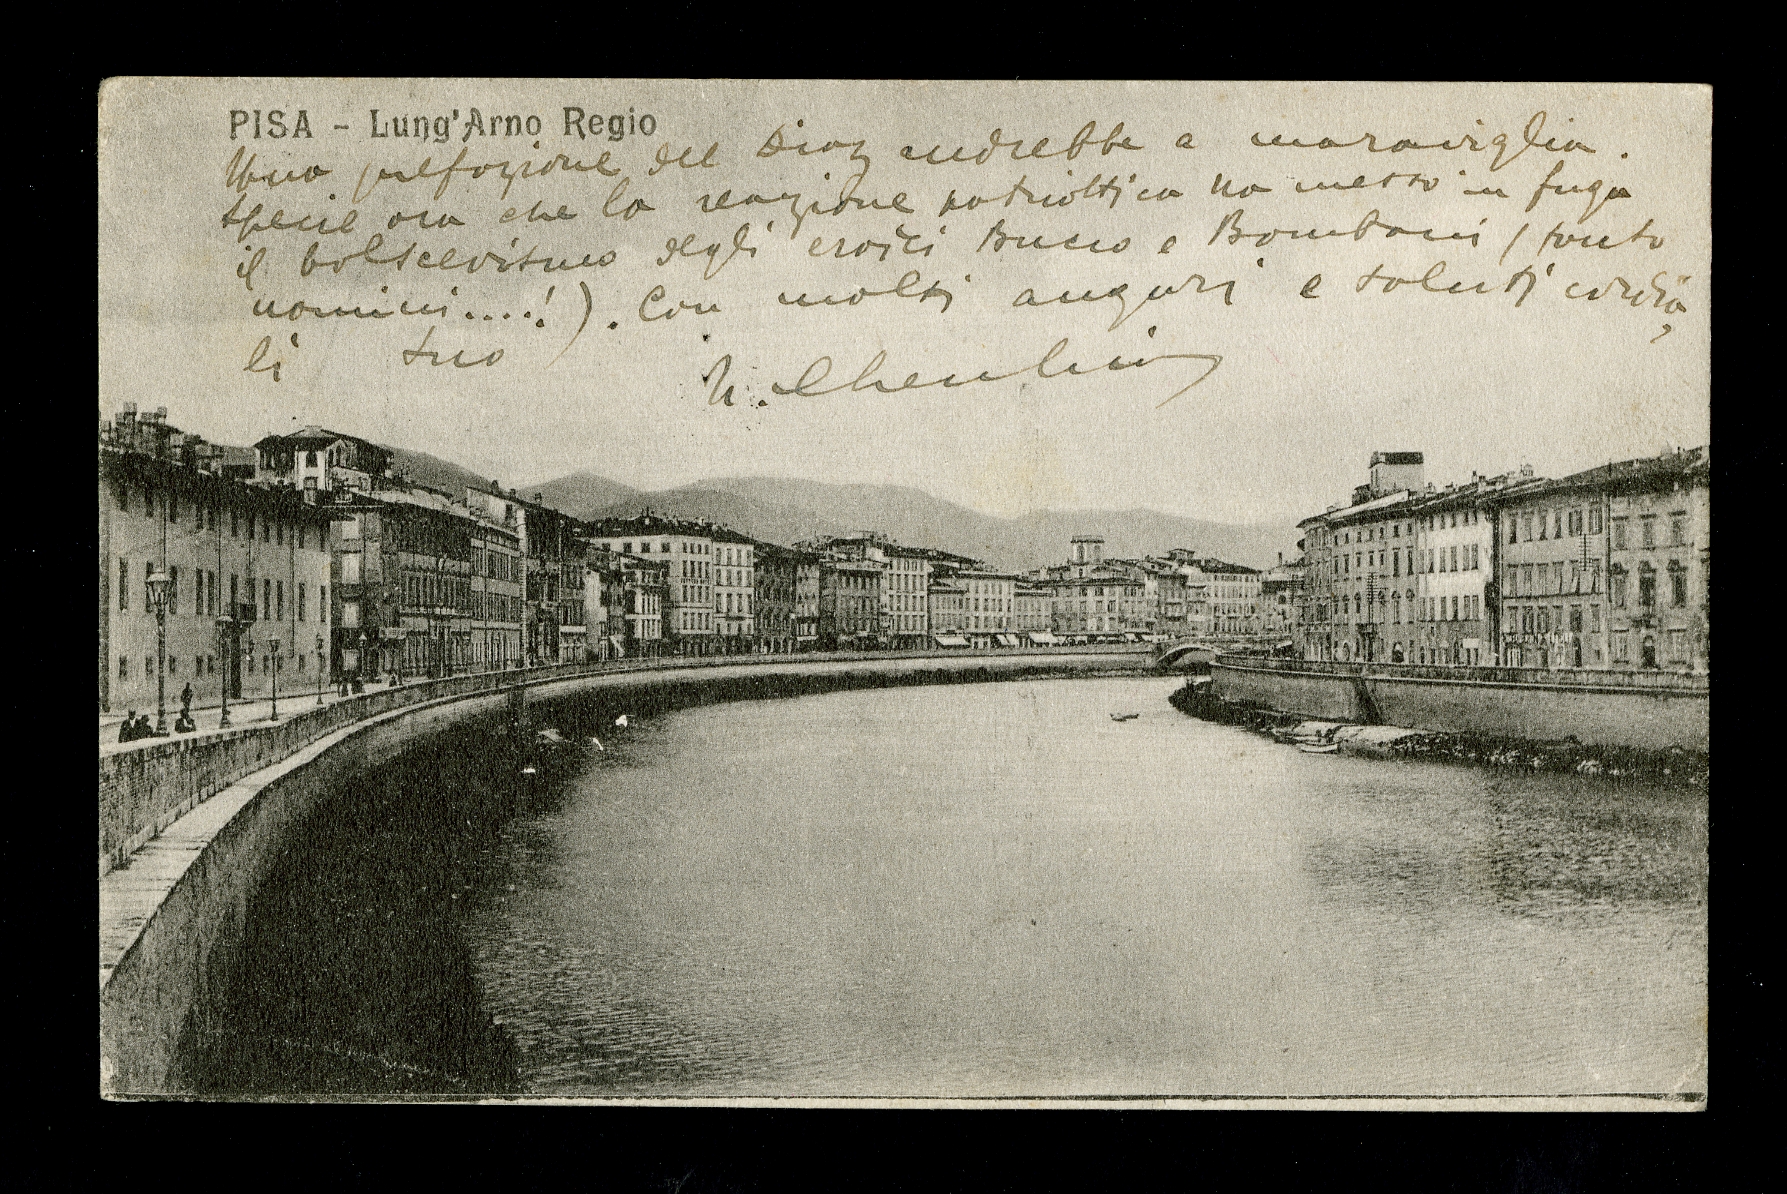 PISA - Lung'Arno Regio
Una prefazione del Diaz andrebbe a maraviglia.
specie ora che la reazione patriottica ha messo in fuga
il bolscevismo degli eroici Bucco e Bombacci (tanto
nomini....!). Con molti auguri e saluti cordia
li tuo